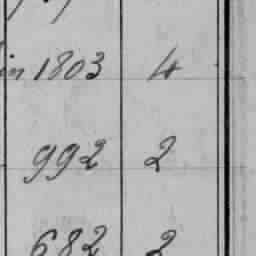 in 1803 4
992 2
682 2